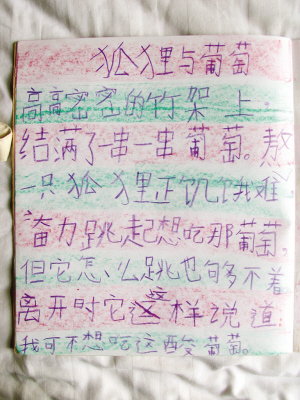 狐狸与葡萄
高高密密的竹架上:
结满了一串一串葡萄。熬
一只狐狸正饥饿难、
奋力跳起想吃那葡萄,
但它怎么跳也够不着
离开时它这样说道:
我可不想吃这酸葡萄。